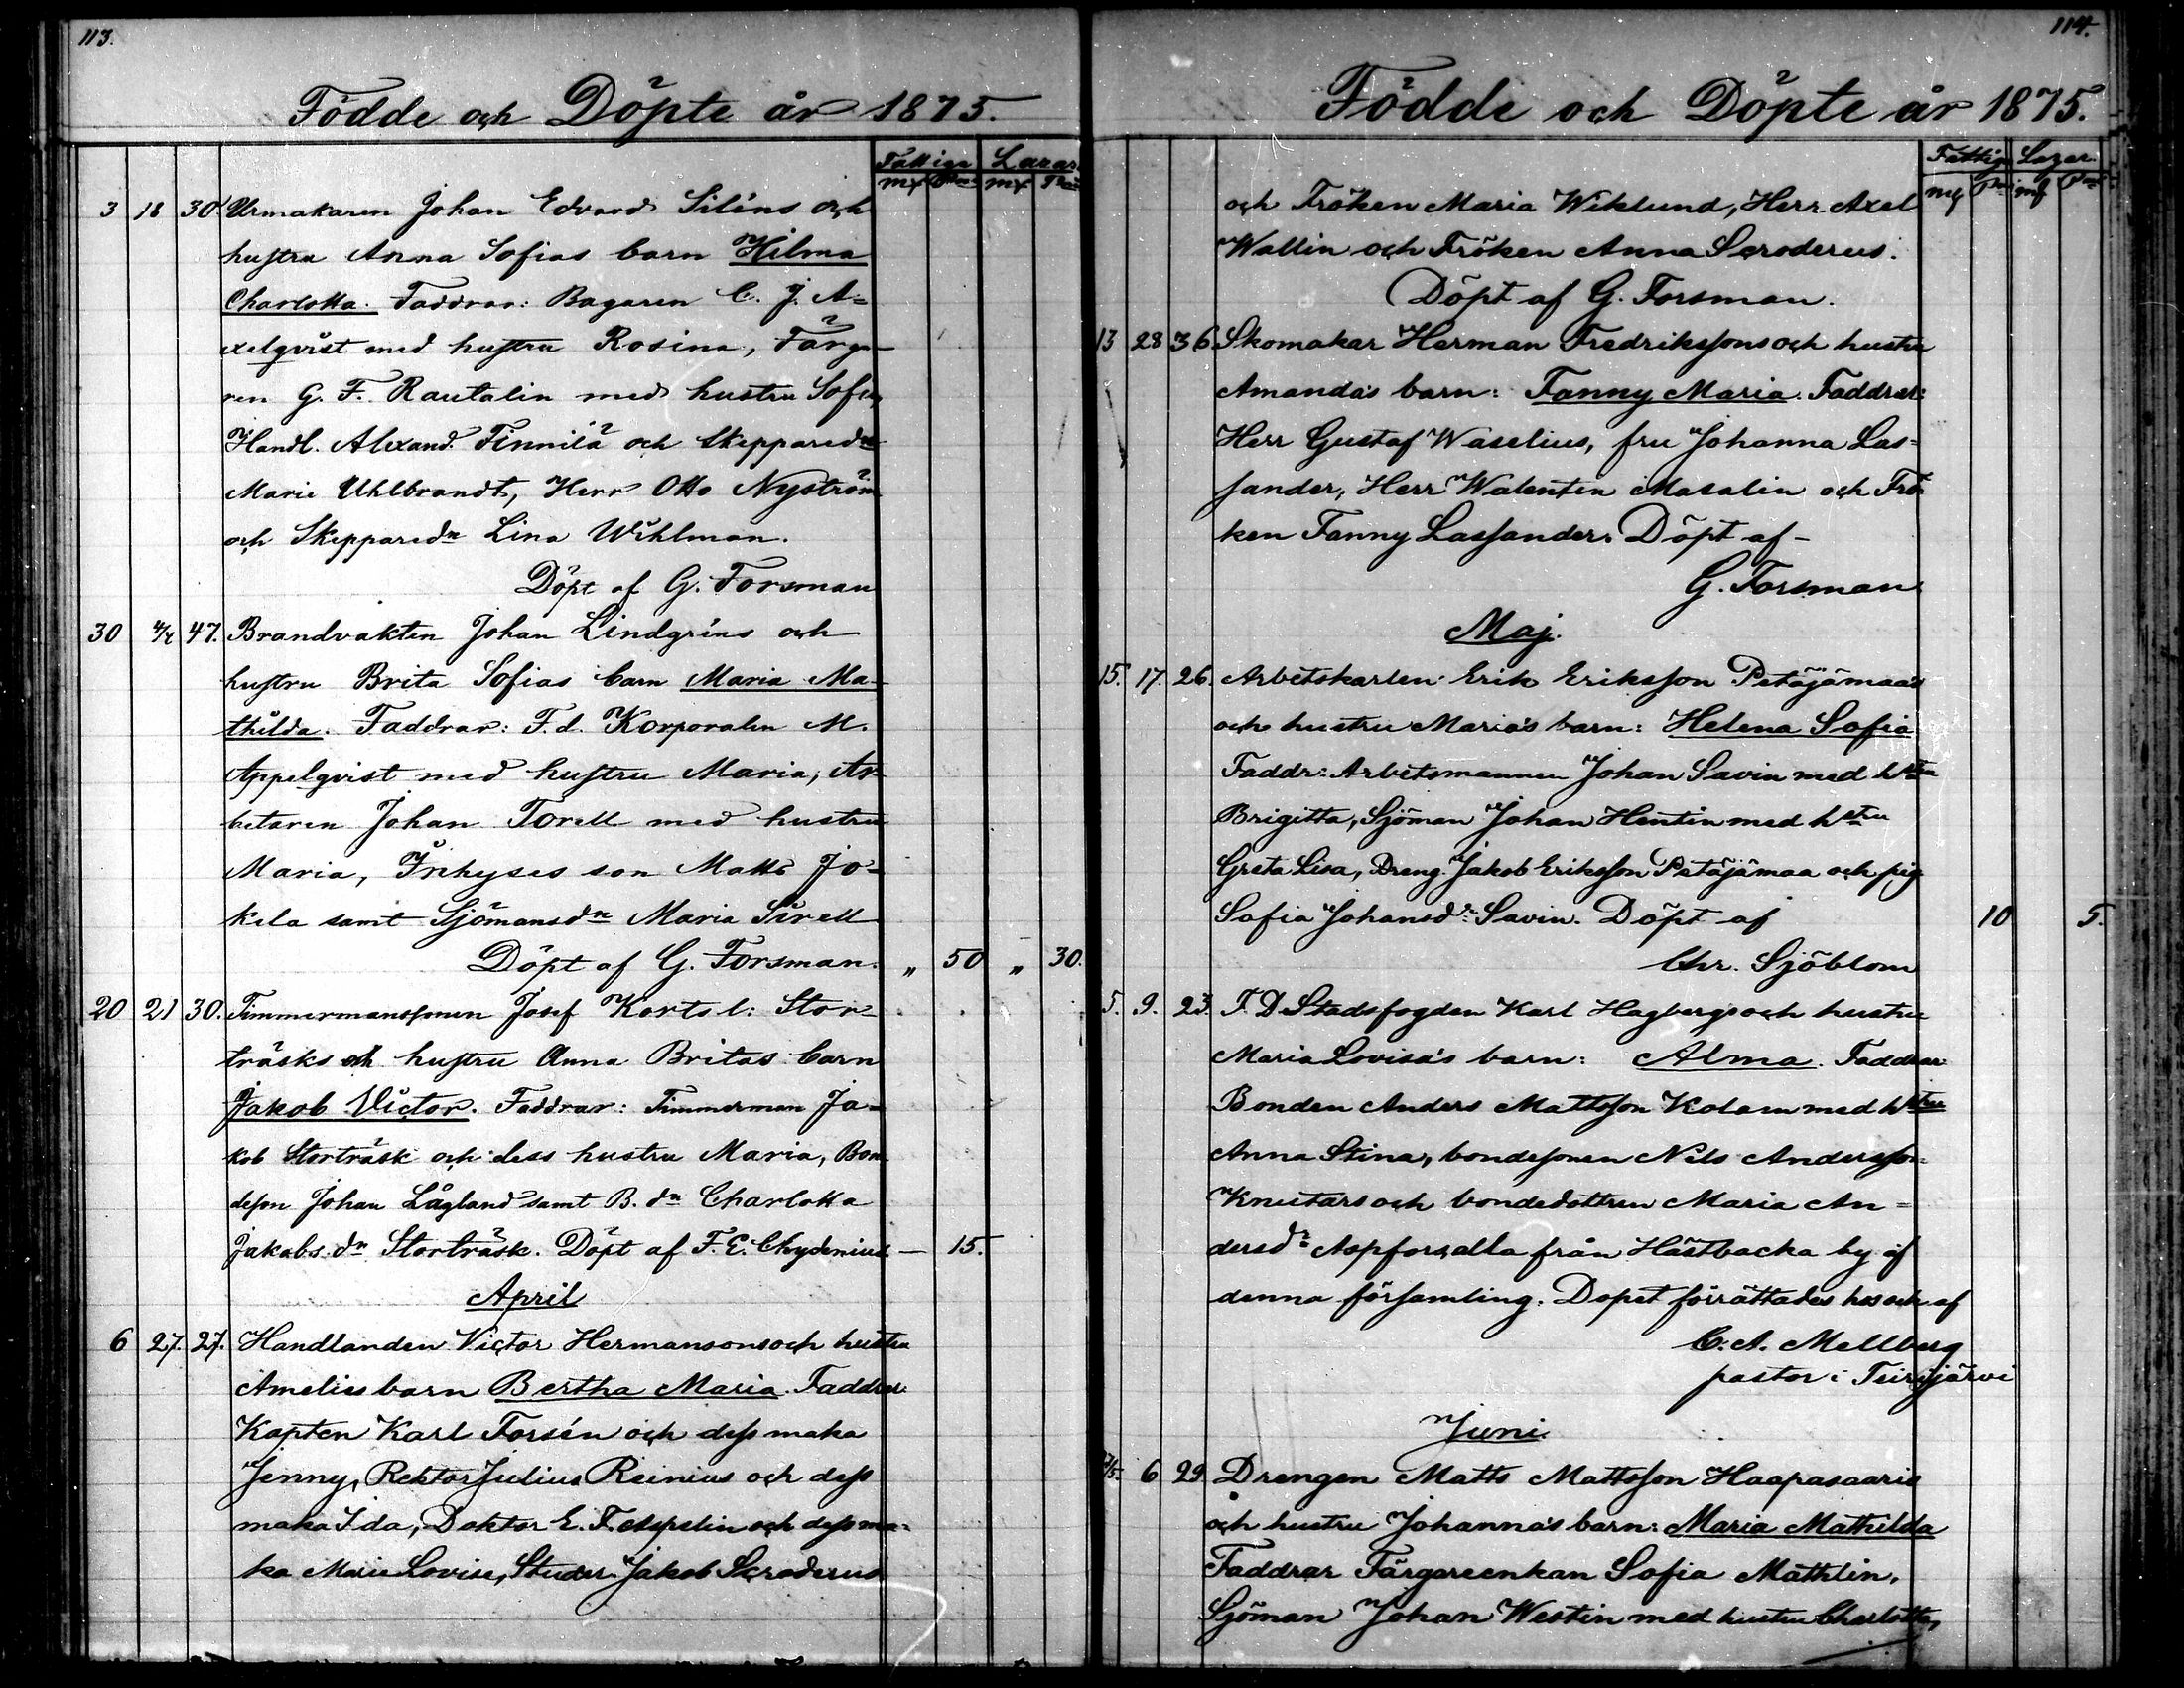 113.
Födde och Döpte år 1875.
Fattiga Lazar.
mf Pn mf Pn
3 18 30 Urmakaren Johan Edvard Siléns och
hustru Anna Sofias barn Hilma
Charlotta. Faddrar: Bagaren C. J. A=
xelqvist med hustru Rosina, Färga-
ren G. F. Rautalin med hustru Sofia,
Handl. Alexand. Finnilä och Skepparedn
Marie Uhlbrandt, Herr Otto Nyström
och Skepparedn Lina Wihlman.
Döpt af G. Forsman
30 4/4 47. Brandvakten Johan Lindgréns och
hustru Brita Sofias barn Maria Ma-
thilda. Faddrar: F.d. Korporalen M.
Appelqvist med hustru Maria, Ar-
betaren Johan Torell med hustru
Maria, Inhyses son Matts Jo-
kela samt Sjömansdn Maria Sirell
Döpt af G. Forsman. „ 50 „ 30.
20 21 30. Timmermanssonen Josef Korts l: Stor-
träsks och hustru Anna Britas barn
Jakob Victor. Faddrar: Timmerman Ja-
kob Storträsk och dess hustru Maria, Bon
deson Johan Lågland samt B. dn Charlotta
Jakobs dn Storträsk. Döpt af F. E. Chydenius — 15.
April
6 27. 27. Handlanden Victor Hermansons och hustru
Amelies barn Bertha Maria. Faddrar:
Kapten Karl Forsén och dess maka
Jenny, Rektor Julius Reinius och dess
maka Ida, Doktor E. F. Aspelin och dess ma=
ka Marie Lovise, Studer. Jakob Scroderus
114.
Födde och Döpte år 1875.
Fattig Lazar.
mf Pn mf Pn
och Fröken Maria Wiklund, Herr Axel
Wallin och Fröken Anna Scroderus.
Döpt af G. Forsman.
13 28 36 Skomakar Herman Fredrikssons och hustru
Amanda's barn: Fanny Maria. Faddrar:
Herr Gustaf Waselius, fru Johanna Las=
sander, Herr Walentin Masalin och Frö-
ken Fanny Lassander. Döpt af -
G. Forsman
Maj.
15. 17. 26. Arbetskarlen Erik Eriksson Petäjämaas
och hustru Maria's barn: Helena Sofia
Faddr: Arbetsmannen Johan Savin med hstru
Brigitta, Sjöman Johan Hentin med hstru
Greta Lisa, Dreng. Jakob Eriksson Petäjämaa och pig.
Sofia Johansdr Savin. Döpt af 10 5.
Chr. Sjöblom
5. 9. 23. F. D Stadsfogden Karl Hagbergs och hustru
Maria Lovisa's barn: Alma. Faddrar
Bonden Anders Mattsson Kolam med hstru
Anna Stina, bondesonen Nils Andersson
Knutars och bondedottren Maria An=
dersdr Aspfors, alla från Hästbacka by af
denna församling. Dopet förrättades hos och af
C. A. Mellberg
pastor i Teirijärvi
Juni
6 29 Drengen Matts Mattsson Haapasaaris
och hustru Johanna's barn: Maria Mathilda
Faddrar Färgareenkan Sofia Mathlin,
Sjöman Johan Westin med hustru Charlotta,